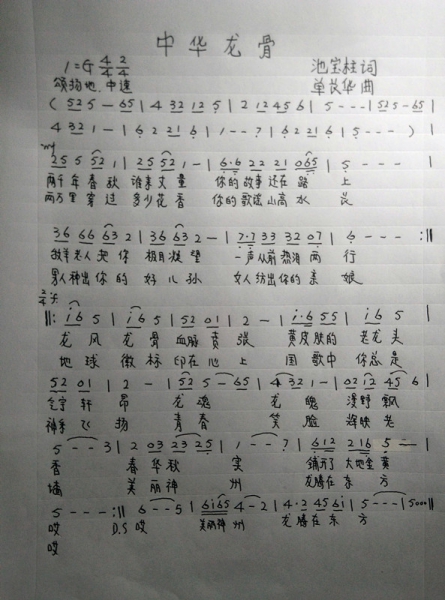 中华龙骨
1=G 4/4 2/4 池宝柱词
颂扬地.中速 单茂华曲
( 525 - 65 | 4 32 12 5 | 2 12 45 6 | 5 - - - | 525 - 65 |
4 32 1 - | 6 2 21 6 | 1 - - 7 | 6 2 21 6 | 5 - - - )
mf
25 5 52 1 | 25 52 1 - | 6·6 22 21 065 | 5 - - - |
两千年春秋 谁来丈量 你的故事还在路上
两万里穿过 多少花香 你的歌谣山高水
36 66 63 2 | 36 63 2 - | 7·7 33 32 07 | 6 - - - :||
牧羊老人把你 极目凝望 一声从前热泪两行
男人种出你的好儿孙 女人纺出你的亲娘
||: i6 5 | i6 5 | 52 01 | 2 - | i·6 55 | i6 5 |
龙风龙骨血脉贲张 黄皮肤的老龙头
地球徽标印在心上 国歌中你总是
52 01 | 2 - | 52 5 - 65 | 4 32 1 - | 02 12 45 6 |
气宇轩昂 龙魂 龙魄 漠野飘
神采飞扬 青春 笑脸
5 - - 3 | 2 03 23 25 | 1 - - 7 | 6 12 216 5 -
香 春华秋实 铺开了大地金黄
美丽神州 龙腾在东方
5 - - - :|| 6 - - 5 | 6i65 4 - 2 | 4·2 45 6i | 5 - - - | 5000 ||
哎 D.S 哎 美丽神州 龙腾在东方
哎